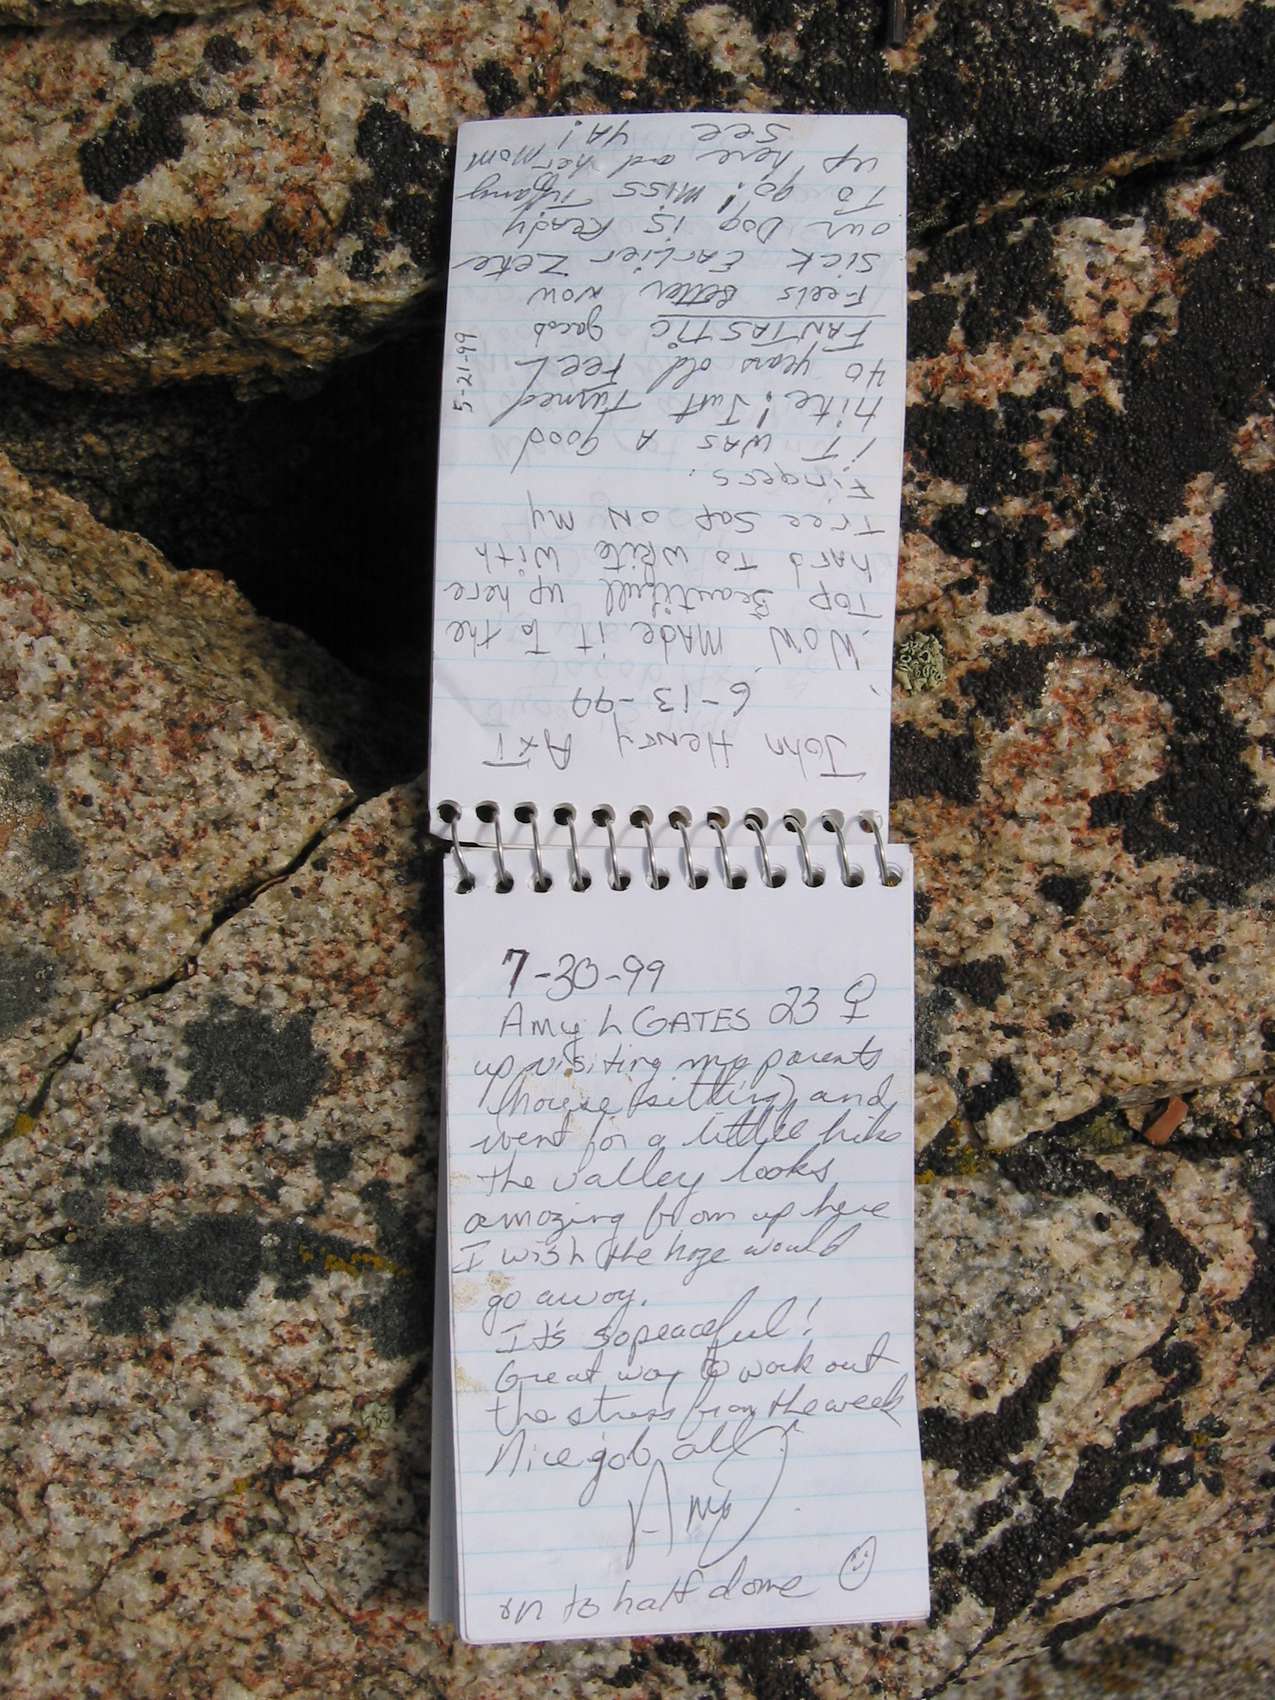 John Henry AxT
6-13-99
Wow MADE iT To the
TOP Beautifull up here
hard To write with
Tree Sap on my
Fingers.
iT was A good
hike! Just Turned
40 years old FEEL
FANTASTIC Jacob
Feels Better now
Sick Earlier Zeke
our Dog is Ready
To go! Miss Tiffany
up here and her mom
See YA!
5-21-99
7-30-99
Amy L GATES 23 ♀
up visiting my parents
(house sitting) and
went for a little hike
the valley looks
amazing from up here
I wish the haze would
go away.
It's so peaceful!
Great way to work out
the stress from the week
Nice job all
Amy
on to half dome ☺